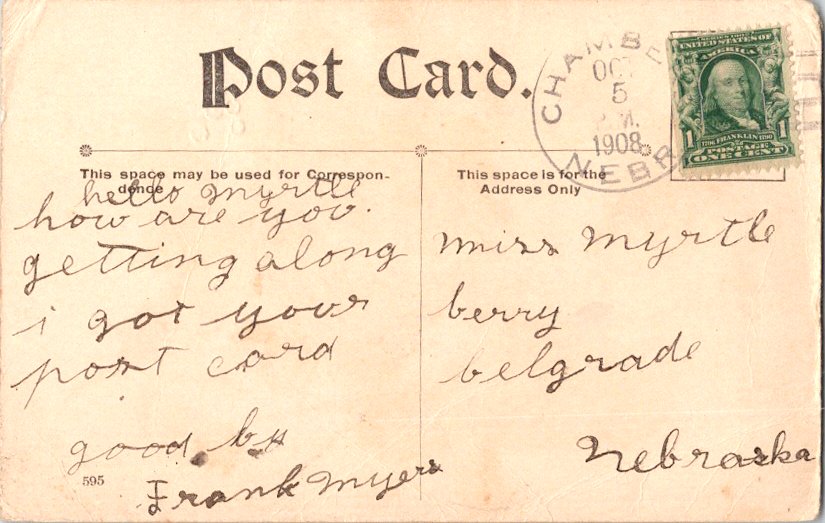 Post Card.
CHAMBE
OCT
5
P.M.
1908
NEBR
SERIES 1902
UNITED STATES OF
AMERICA
1 1
1706 FRANKLIN 1790
POSTAGE
ONE CENT
This space may be used for Correspon-
dence
hello myrtle
how are you.
getting along
i got your
post card
good by
Frank myers
595
This space is for the
Address Only
miss myrtle
berry
belgrade
Nebraska